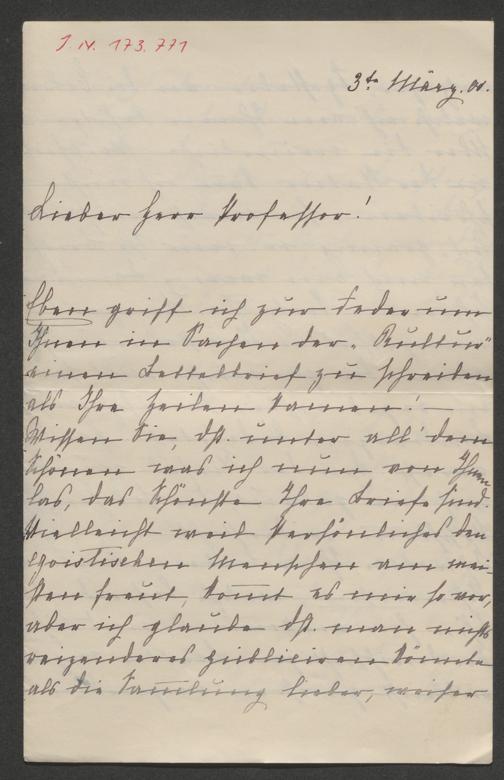 J. N. 173.771
3te März. 00.
Lieber Herr Professor!
Eben griff ich zur Feder um
Ihnen in Sachen der „Kultur"
einen Bettelbrief zu schreiben
als Ihre Zeilen kamen! —
Wissen Sie, dß. unter all' dem
Schönen was ich nun von Ihnen
las, das Schönste Ihre Briefe sind.
Vielleicht weil Persönliches den
egoistischen Menschen am mei-
sten freut, kom̅t es mir so vor,
aber ich glaube dß. man nichts
reizenderes publiciren könnte
als die Sam̅lung lieber, weiser